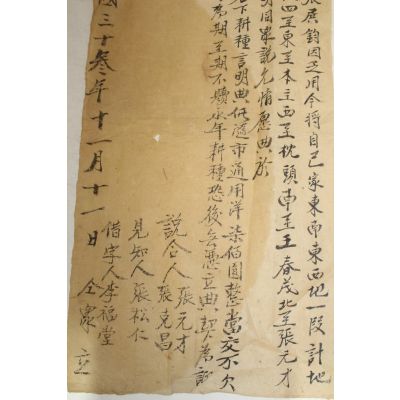 張展鈞因乏用今將自己家東南東西地一段計地
四至東至本主西至枕頭南至王春茂北至張元才
明同衆說允情愿典於
下耕種言明典价隨市通用洋柒佰圓整當交不欠
為期至期不贖永年耕種恐後無憑立典契為証
說合人張元才
張克昌
見知人張松仁
借字人李福堂
國三十叁年十一月十一日 仝衆 立